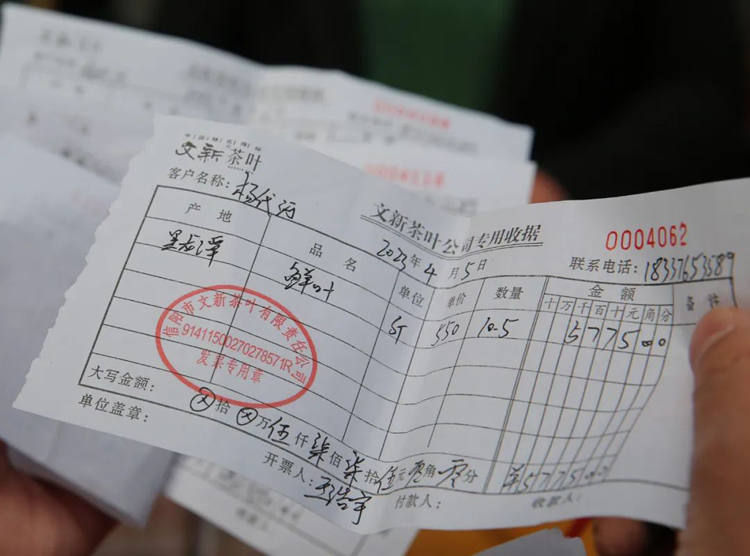 文新茶叶
文新茶叶公司专用收据
0004062
客户名称：杨代河
2023年4月5日
联系电话：18337653589
产地 品名 单位 单价 数量 金额 备注
十万千百十元角分
黑龙潭 鲜叶 斤 550 10.5 577500
信阳市文新茶叶有限责任公司
91411500270278571R
发票专用章
大写金额：⊗拾⊗万伍仟柒佰柒拾伍元零角零分 ¥577500
单位盖章： 开票人： 付款人： 收款人：